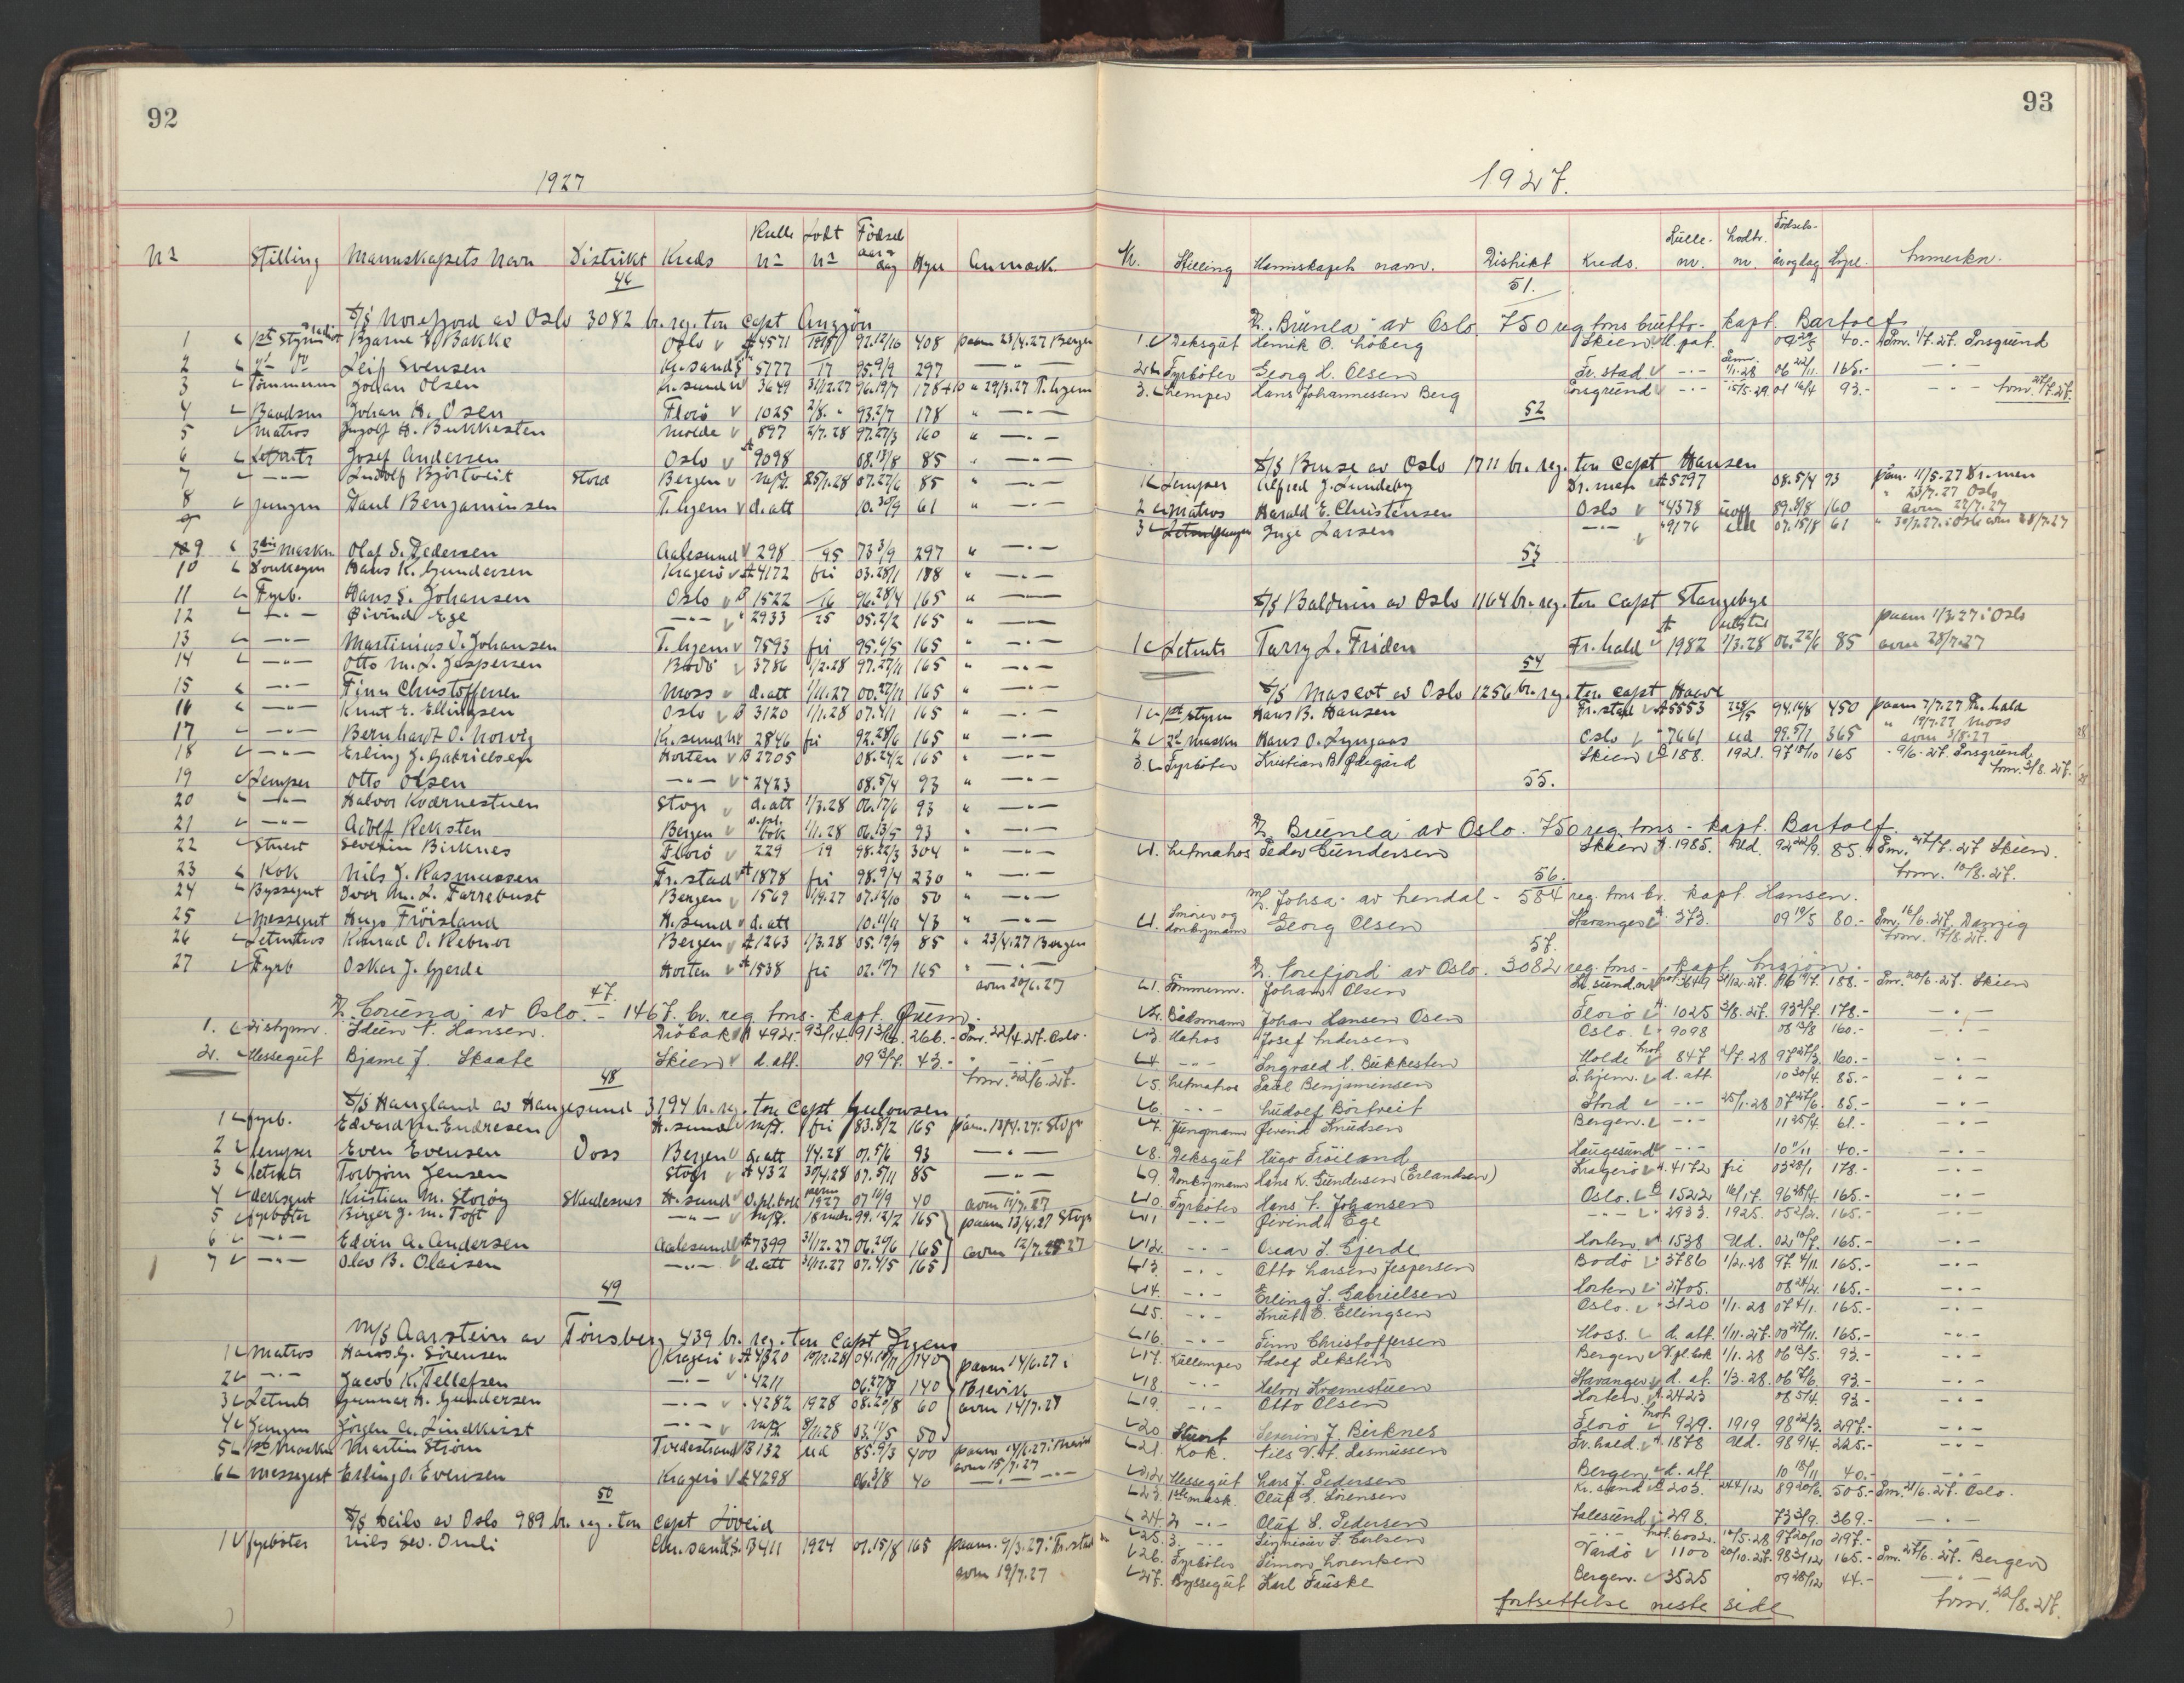 92
1927
No Stilling Mannskapets Navn Distrikt Kreds Rulle No Lodt No Födsel aar & dag Hyre Anmærk
46
S/S Norefjord av Oslo 3082 br. reg. ton Capt
1 1st Styrm Bjarne Bakke Oslo 4571 92.12/10 408 paam 23/4.27 Bergen
2 Leif Svensen Kr.sand S 5777 17 95.9/9 297 — " —
3 Tömmerm Johan Olsen Kr.sund N 3649 31/12.27 96.19/7 178+10 " 29/3.27 T.hjem
4 Baadsm Johan H. Osen Florö 1025 2/8. " 93.2/7 178 " — " —
5 Matros H. Bukkesten Molde 897 2/7.28 97.27/3 160 " — " —
6 Letmatr Josef Andersen Oslo A 9098 08.13/8 85 " — " —
7 — " — Ludolf Björtveit Stord Bergen 25/1.28 07.27/6 85 " — " —
8 Jungm Paul Benjaminsen T.hjem d.att 10.30/9 61 " — " —
9 3die Maskn Olaf S. Pedersen Aalesund 298 95 73 3/9 297 " — " —
10 Donkeym Hans K. Gundersen Kragerö A 4172 fri 03.28/1 178 " — " —
11 Fyrb. Hans S. Johansen Oslo B 1522 16 96.28/4 165 " — " —
12 — " — Øivind Ege — " — " 2933 25 05.2/2 165 " — " —
13 — " — Martinius J. Johansen T.hjem 7593 fri 95.6/5 165 " — " —
14 — " — Otto M. L. Jespersen Bodö 3786 1/2.28 97.27/11 165 " — " —
15 — " — Finn Christoffersen Moss d.att 1/11.27 00.27/11 165 " — " —
16 — " — Knut E. Ellingsen Oslo B 3120 1/1.28 07.4/1 165 " — " —
17 — " — Bernhardt O. Norvig Kr.sund N 2846 fri 92.28/6 165 " — " —
18 — " — Erling J. Gabrielsen Horten B 2705 08.24/2 165 " — " —
19 Lemper Otto Olsen — " — " 2423 08.5/4 93 " — " —
20 — " — Halvor Kværnestuen Stvgr d.att 1/3.28 06.17/6 93 " — " —
21 — " — Adolf Reksten Bergen v.pl. bok 1/1.28 06.13/5 93 " — " —
22 Stuert Severin Birknes Florö 229 19 98.22/3 304 " — " —
23 Kok Nils J. Rasmussen Fr.stad A 1878 fri 98.9/4 230 " — " —
24 Byssegut Ivar M. L. Farrebust Bergen 1569 1/9.27 07.12/10 50 " — " —
25 Messegut Hugo Fröisland H.sund d.att 10.11/11 43 " — " —
26 Letmatros Konrad O. Rebnor Bergen A 1263 1/3.28 05.19/9 85 " 23/4.27 Bergen
27 Fyrb Oskar J. Gjerde Horten A 1538 fri 02.10/7 165 " — " —
avm 20/6.27
47.
D/S "Corona" av Oslo. - 1467. br. reg. tons. - kapt. Øum.
1. 2. styrm. T. Hansen. Dröbak A 492 93/14 91 266.- Pm. 22/4.27. Oslo.-
2. Messegut Bjarne J. Skaate Skien d.att. 09 43.- " — " —
Avm. 22/6.27.
48
S/S Haugland av Haugesund 3194 br. reg. ton Capt Gulowsen
1 Fyrb. Edvard M. Endresen H.sund fri 83.8/2 165 paam. 13/4.27 i Stvgr
2 Lemper Even Evensen Voss Bergen d.att 1/4.28 07.5/6 93 — " —
3 Letmatr Torbjörn Jensen Stvgr A 432 30/4.28 07.5/11 85 — " —
4 Deksgut Kristian M. Storöy Skudesnes H.sund v.pl.bok 1927 07 10/9 40 avm 12/7.27
5 Fyrböter Birger J. M. Toft — " — 99.12/2 165 paam 13/4.27 Stvgr
6 — " — Edvin A. Andersen Aalesund A 7399 31/12.27 06.20/6 165 avm 12/7.27
7 — " — Olav B. Olaisen — " — d.att 31/12.27 07.4/5 165
49
M/S Aarstein av Tönsberg 439 br. reg. ton Capt
1 Matros Hans G. Sörensen Kragerö A 4320 10/12.28 04.18/11 140 paam 14/6.27 i
2 — " — Jacob K. Tellefsen — " — " 4211 06.27/8 140 Brevik
3 Letmatr Gunnar A. Gundersen — " — " 4282 1928 08.20/8 60 avm 14/7.27
4 Jungm Jörgen A. Lindkvist — " — 8/11.28 03.11/5 50
5 1st Maskn Martin Ström Tvedestrand B 132 ud 85.9/3 400 paam 14/6.27 i Brevik avm 15/7.27
6 Messegut Erling O. Evensen Kragerö A 4298 06.3/8 40 — " —
50
S/S Heilo av Oslo 989 br. reg. ton Capt Löveid
1 Fyrböter Nils Sev. Omli Chr.sand S. B 411 1924 01.15/8 165 paam. 9/3.27 i Fr.stad
avm 19/7.27
93
1927.
Nr. Stilling Mannskapets navn. Distrikt Kreds. Rulle-nr. Lodtr. nr. Födsels-år og dag Hyre. Anmerkn.
51.
D/S "Brünla" av Oslo. 750 reg. tons brutto - kapt. Bartolf
1. Deksgut Henrik O. Löberg Skien 09 40.- Pm. 1/7.27. Porsgrund
2. Fyrböter Georg H. Olsen Fr.stad — " — 1/1.28 06 22/11. 165.- — " —
3. Lemper Hans Johannessen Berg Porsgrund — " — 15/5.29. 01 16/4 93.- — " — Avm. 27/7.27.
52
S/S Bruse av Oslo 1711 br. reg. ton Capt Hansen
1 Lemper Alfred J. Lundeby Dr.men A 5297 08.5/4 93 paam. 11/5.27 Dr.men
2 Matros Harald E. Christensen Oslo " 4378 89.3/8 160 " 23/7.27 Oslo avm 27/7.27
3 Jungm Inge Larsen — " — " 9176 07.15/8 61 " 30/7.27 i Oslo avm 28/7.27
53
S/S Balduin av Oslo 1164 br. reg. ton Capt Stangebye
1 Letmatr Tarry L. Friden Fr.hald A 1982 1/3.28 06.22/6 85 paam 1/3.27 i Oslo avm 28/7.27
54
S/S Mascot av Oslo 1256 br. reg. ton Capt Haave
1 1st Styrm Hans B. Hansen Fr.stad A 5553 94.16/8 450 paam 7/7.27 Fr.hald
2 2d Maskn Hans O. Lyngaas Oslo " 7661 ud 99.5/1 365 " 19/7.27 Moss avm 3/8.27
3. Fyrböter Kristian B. Ødegård Skien B 188. 1921. 97 18/10 165 - 9/6.27. Porsgrund Avm. 3/8.27.
55.
D/S "Brünla" av Oslo. 750 reg. tons - kapt. Bartolf.
1. Letmatros Peder Gundersen Skien A. 1985. Ud. 92 22/9. 85. Pm. 27/7.27 Skien. Avm. 10/8.27.
56.
M/S "Johsa" av Arendal - 584 reg. tons br. kapt. Hansen.
1. Smörer og donkeymann Georg Olsen Stavanger A 373. 09 19/5 80.- Pm. 16/6.27. Danzig Avm. 17/8.27.
57.
D/S "Norefjord" av Oslo. 3082 reg. tons - kapt.
1. Tömmerm. Johan Olsen Kr.sund.n 3649 31/12.27. 96 19/7. 188.- Pm. 20/6.27. Skien
2. Båtsmann Johan Hansen Osen Florö A. 1025 2/8.27. 93 2/7. 178.- — " —
3. Matros Josef Andersen Oslo. 9098 08 13/8 160.- — " —
4. — " — Ingvald H. Bukkesten Molde 847 2/7.28 97 27/3. 160.- — " —
5. Letmatros Paul Benjaminsen T.hjem. d.att. 10 30/4. 85.- — " —
6. — " — Ludolf Börtveit Stord — " — 25/1.28 07 27/6. 85.- — " —
7. Jungmann Øivind Knudsen Bergen. — " — 11 25/4. 61.- — " —
8. Deksgut Hugo Fröiland Haugesund — " — 10 11/11 40.- — " —
9. Donkeymann Hans K. Gundersen (Erlandsen) Kragerö A. 4172 fri 03 28/1 178.- — " —
10. Fyrböter Hans T. Johansen Oslo. B 1522 16/17. 96 28/4. 165.- — " —
11 — " — Øivind Ege — " — " 2933. 1925. 05 2/2. 165.- — " —
12. — " — Oscar J. Gjerde Horten A 1538 Ud. 02 10/7. 165.- — " —
13. — " — Otto Larsen Jespersen Bodö " 3786 1/2.28 97. 4/11. 165.- — " —
14. — " — Erling J. Gabrielsen Horten " 2705. 08 24/2. 165.- — " —
15. — " — Knut E. Ellingsen Oslo. " 3120 1/1.28 07 4/1. 165.- — " —
16. — " — Finn Christoffersen Moss. d.att. 1/11.27. 00 27/11. 165.- — " —
17. Kullemper Adolf Reksten Bergen V.pl.bok 1/1.28 06 13/5. 93.- — " —
18. — " — Halvor Kvarnestuen Stavanger d.at. 1/3.28. 06 7/6. 93.- — " —
19. — " — Otto Olsen Horten. A. 2423 08 5/4 93.- — " —
20. Stuert Severin J. Birknes Florö 929. 1919 98 22/3. 297.- — " —
21. Kok. Nils Rasmussen Fr.hald. A. 1878 Ud. 98 9/4. 225.- — " —
22. Messegut Lars J. Pedersen Bergen d.att. 10 18/11 40.- — " —
23. 1ste mask. Oluf G. Sörensen Kr.sand 203. 24 4/12 89 20/6. 505.- Pm. 21/6.27. Oslo.
24. 2. — " — Oluf S. Pedersen Aalesund " 298. 73 3/9. 369.- — " —
25. 3. — " — J. Carlsen — " — 6052. 10/5.28. 97 20/10 297.- — " —
26. Fyrböter Simon Lorentsen Vardö 1100 20/10.27. 98 31/12 165.- Pm. 27/6.27. Bergen
27. Byssegut Karl Fauske Bergen. 3525 09 28/12 44.- — " —
fortsettelse neste side Avm. 22/8.27.